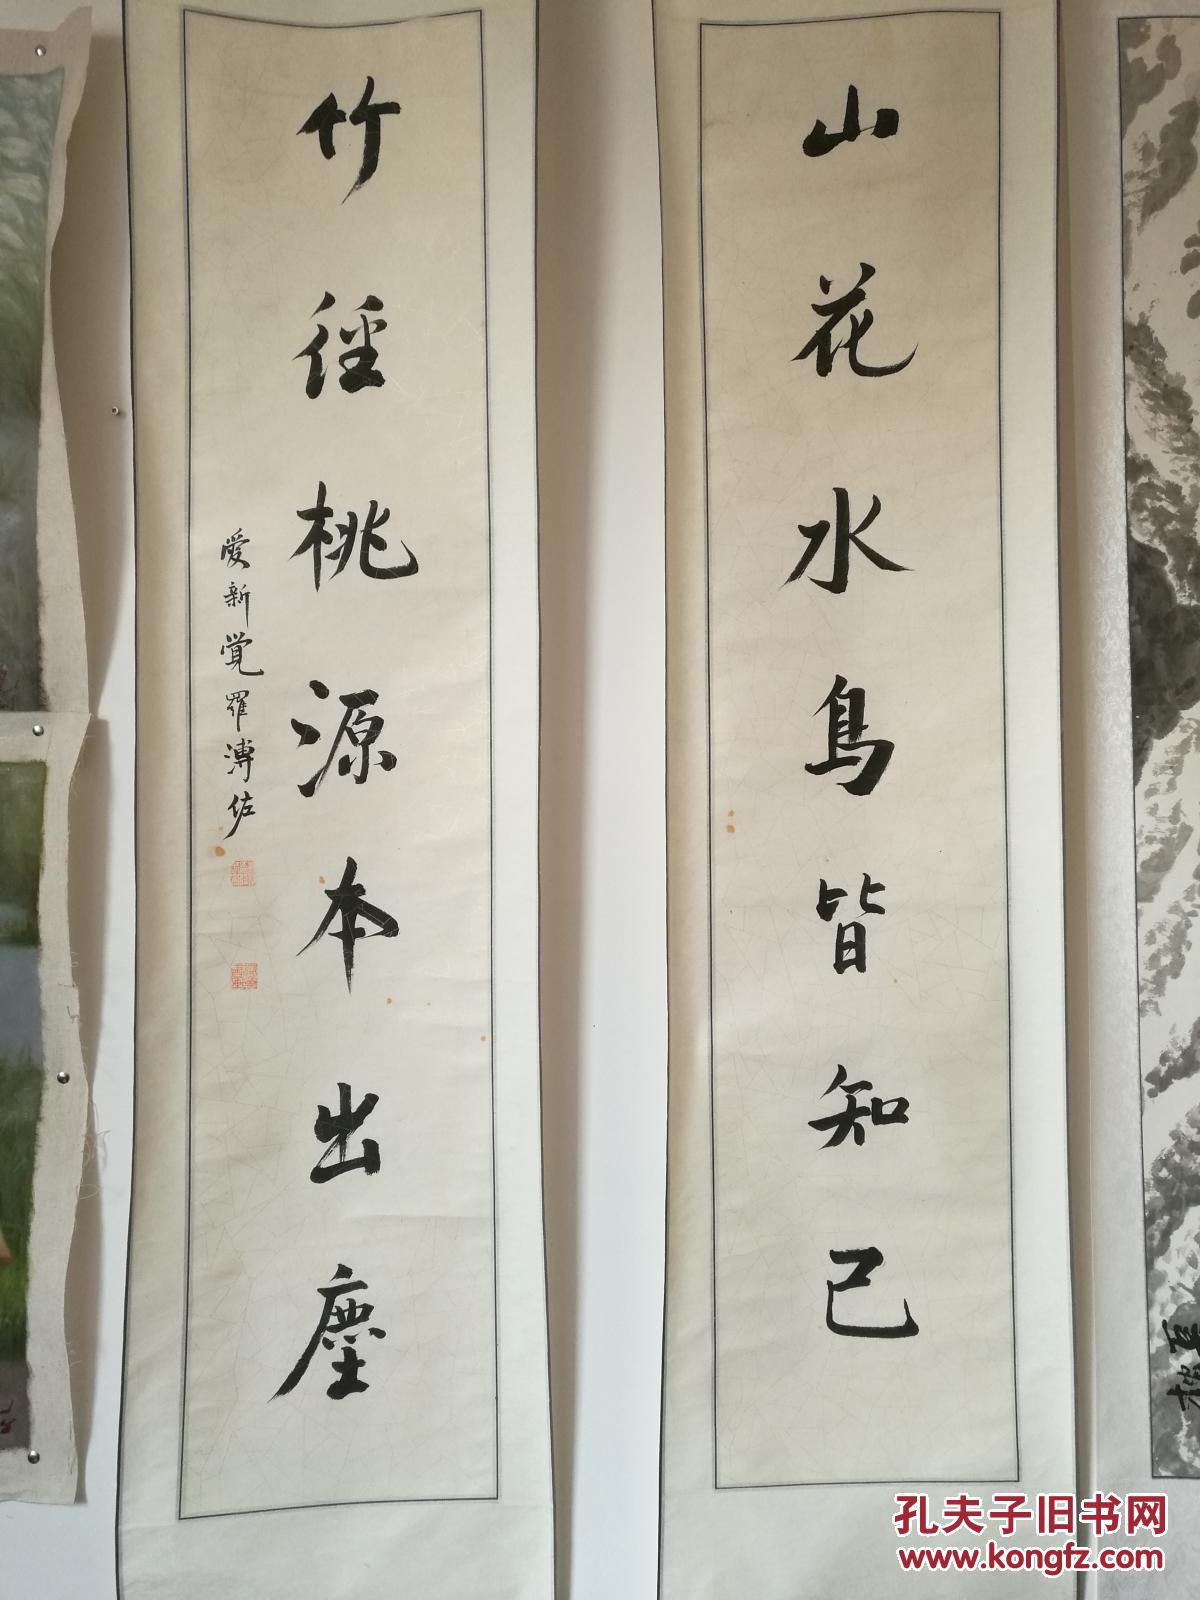 山花水鳥皆知己
竹径桃源本出塵
愛新覚羅溥佐
孔夫子旧书网
www.kongfz.com